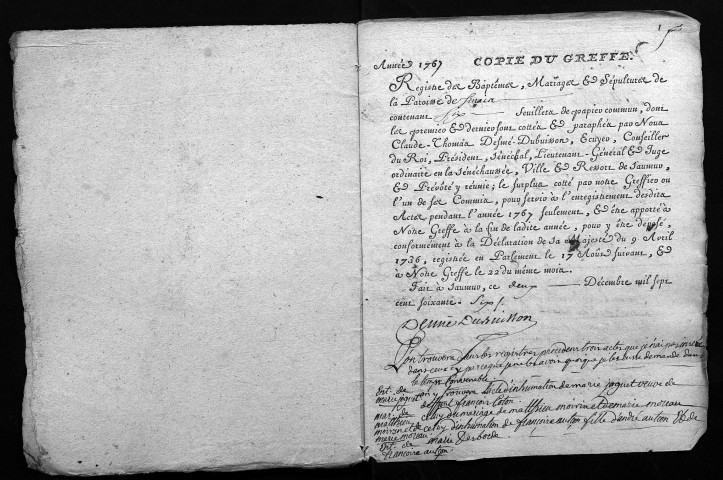 1
COPIE DU GREFFE.
Année 1767
Registre des Baptêmes, Mariages & Sépultures de
la Paroisse de
contenant six feuillets de papier commun, dont
les premier & dernier sont cottés & paraphés par Nous
Claude-Thomas Desmé-Dubuisson, Ecuyer, Conseiller
du Roi, Président, Sénéchal, Lieutenant-Général & Juge
ordinaire en la Sénéchaussée, Ville & Ressort de Saumur,
& Prévôté y réunie; le surplus cotté par notre Greffier ou
l'un de ses Commis, pour servir à l'enregistrement desdits
Actes pendant l'année 1767 seulement, & être apporté à
Notre Greffe à la fin de ladite année, pour y être déposé,
conformément à la Déclaration de Sa Majesté du 9 Avril
1736, registrée en Parlement le 17 Août suivant, &
à Notre Greffe le 22 du même mois.
Fait à Saumur, ce deux Décembre mil sept
cent soixante-six.
Desmé Dubuisson
on trouvera dans les registres precedent trois actes que j'ai
dans ceux-cy parceque je ne les avois
le temps convenable
ent. de
marie jaguet on y trouvera l'acte d'inhumation de marie jaguet veuve de
deffunt françois
mar. de
matthieu celuy du mariage de matthieu moirin et de marie moreau
moirin et de celuy d'inhumation de françoise autom fille d'andré autom & de
marie moreau marie
ent. de
françoise autom